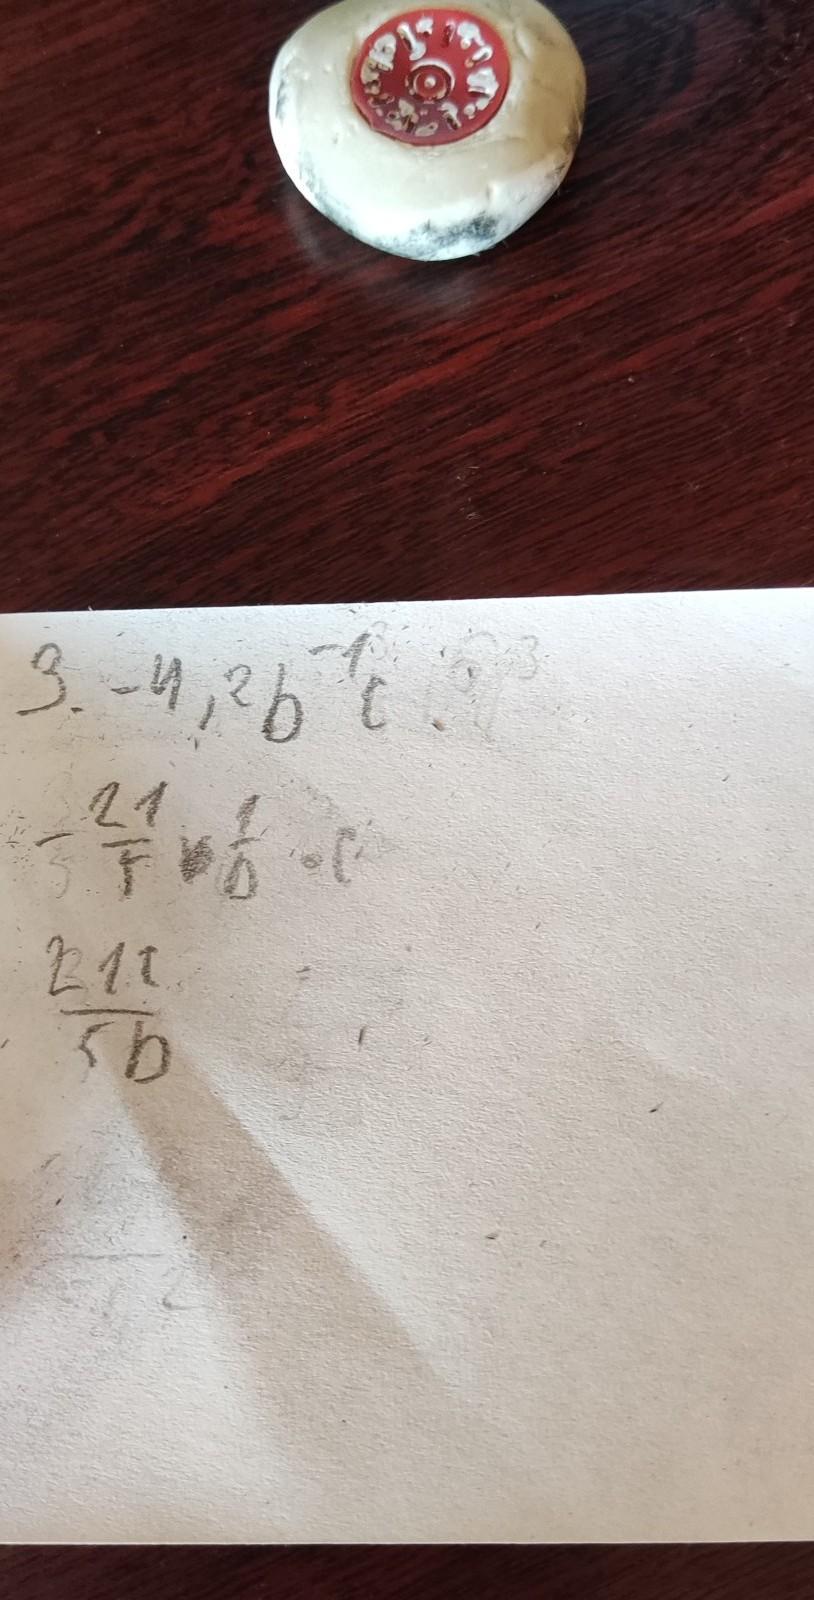 3. -4,2b⁻¹c .
- 21/5 · 1/b · c
21c/5b